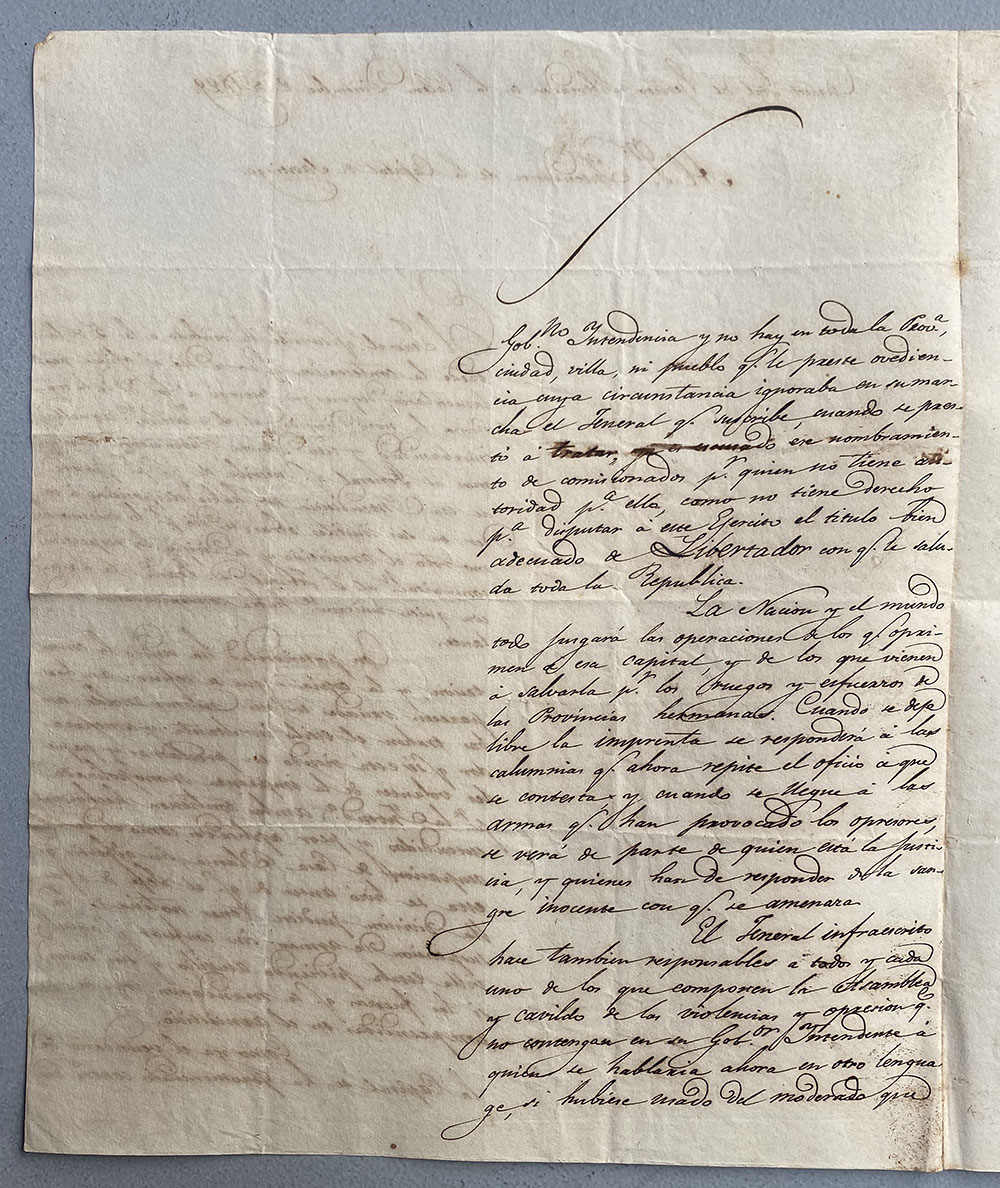 Gob.no Yntendencia y no hay en toda la Prov.a,
ciudad, villa, ni pueblo q.e le preste ovedien-
cia cuya circunstancia ignoraba en su mar-
cha el Jeneral q.e suscribe, cuando se pres-
tó á tratar, ese nombramien-
to de comisionados p.r quien no tiene au-
toridad p.a ello, como no tiene derecho
p.a disputar á este Ejercito el titulo bien
adecuado de Libertador con q.e le salu-
da toda la Republica.
La Nacion y el mundo
todo jusgará las operaciones de los q.e opri-
men á esa capital, y de los que vienen
á salvarla p.r los rruegos y esfuerzos de
las Provincias hermanas. Cuando se deje
libre la imprenta se responderá á las
calumnias q.e ahora repite el oficio á que
se contesta, y cuando se llegue á las
armas q.e han provocado los opresores,
se verá de parte de quien está la justi-
cia, y quienes han de responder de la san-
gre inocente con q.e se amenaza.
El Jeneral infraescrito
hace tambien responsables á todos y cada
uno de los que componen la Asamblea
y cavildo de las violencias y opresion q.e
no contengan en su Gob.or Yntendente á
quien se hablaria ahora en otro lengua
ge, si hubiese usado del moderado que